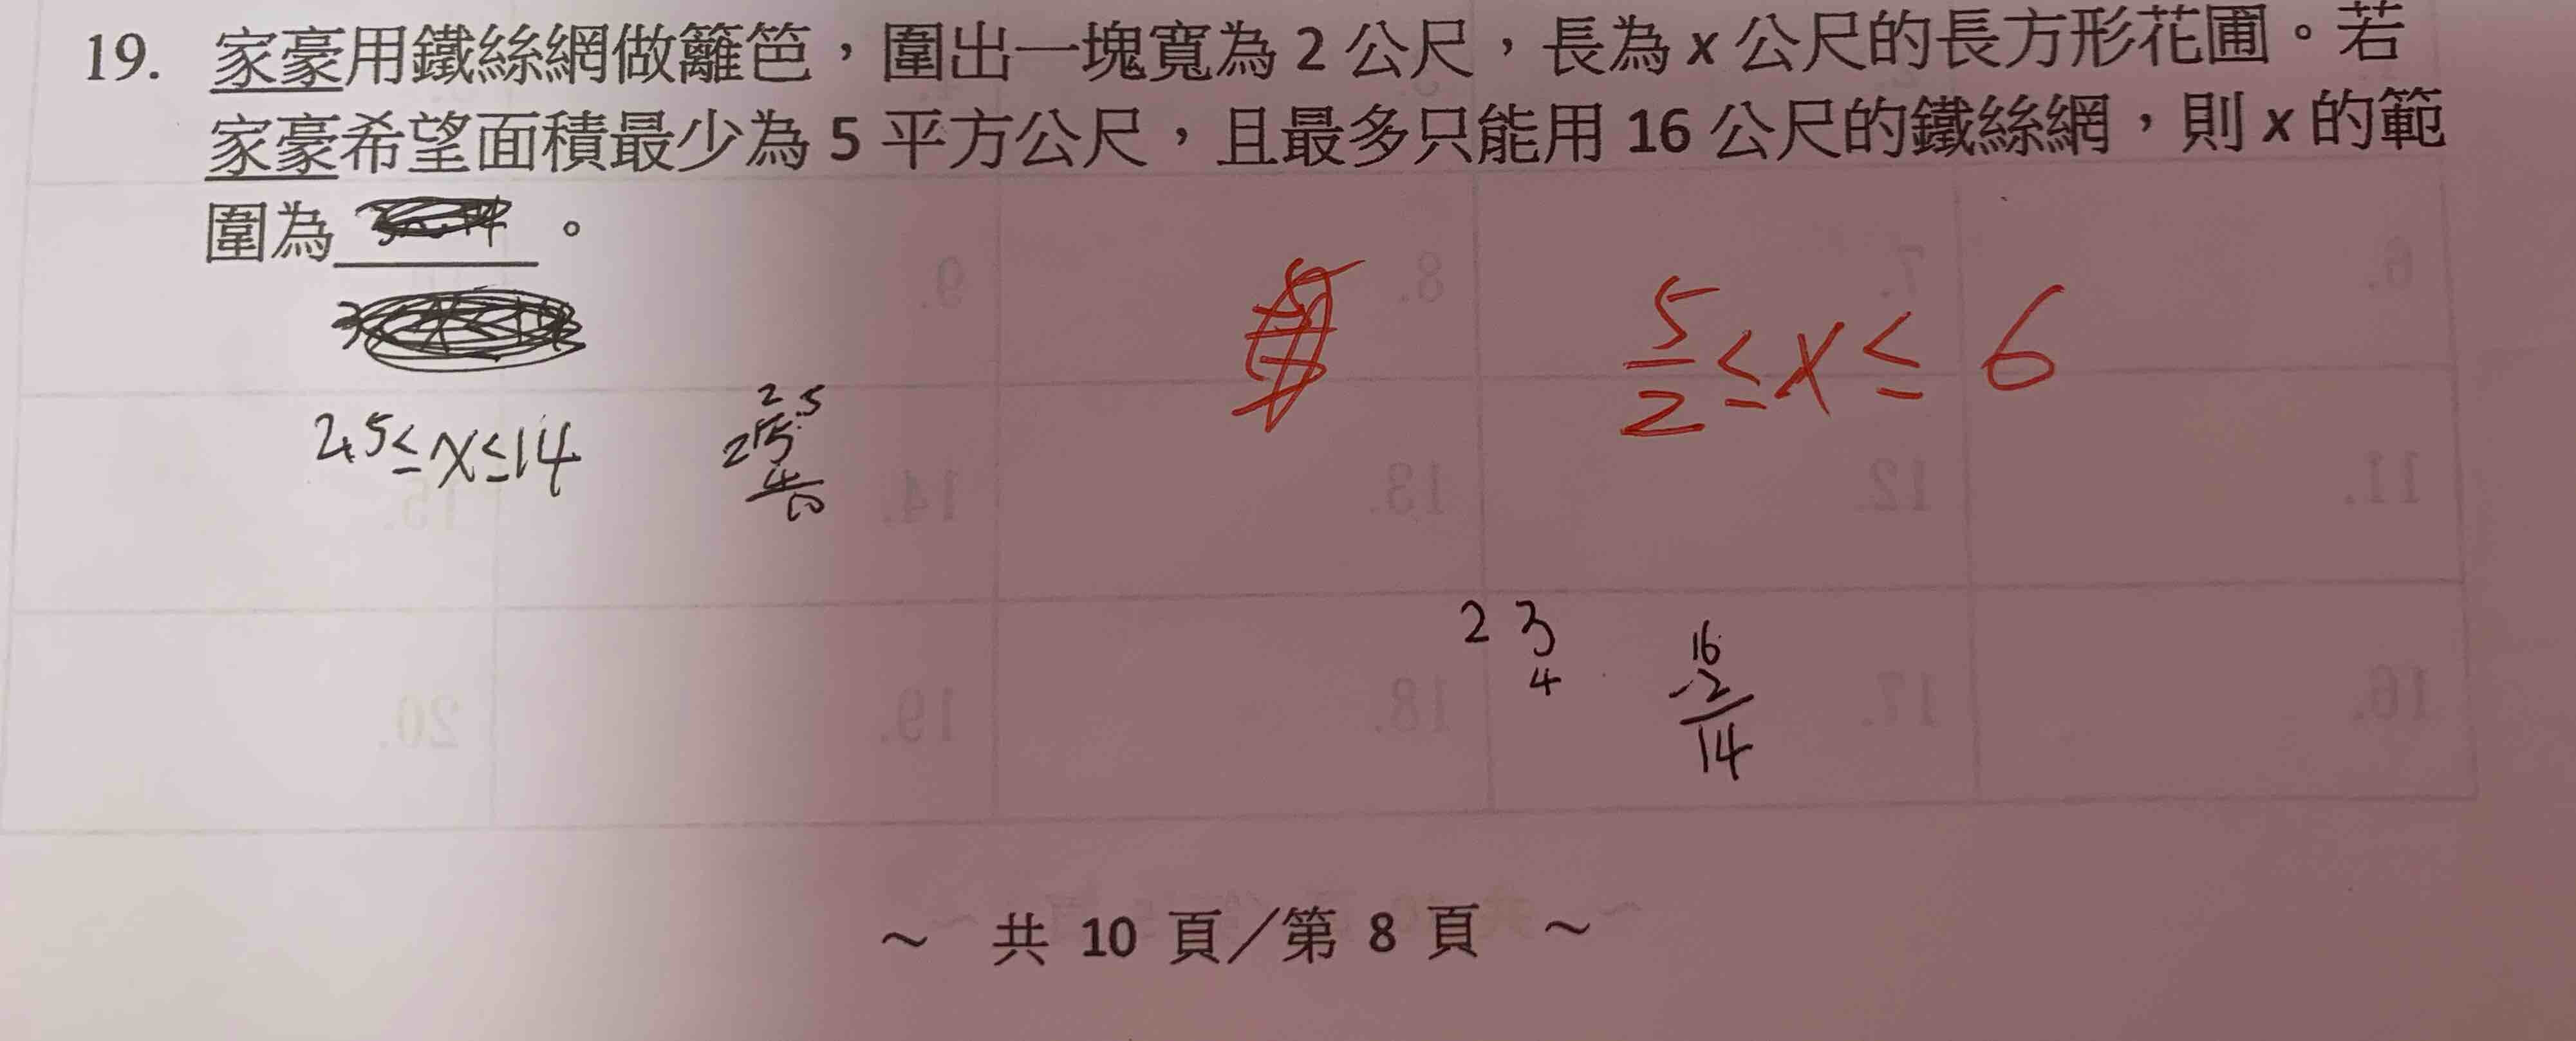 19. 家豪用鐵絲網做籬笆，圍出一塊寬為 2 公尺，長為 x 公尺的長方形花圃。若
家豪希望面積最少為 5 平方公尺，且最多只能用 16 公尺的鐵絲網，則 x 的範
圍為 。
5/2 ≤ x ≤ 6
2.5 ≤ x ≤ 14
2.5
2
4
10
2 3
4
16
-2
14
6.
7.
8.
9.
11.
12.
13.
14.
15.
16.
17.
18.
19.
20.
～ 共 10 頁／第 8 頁 ～